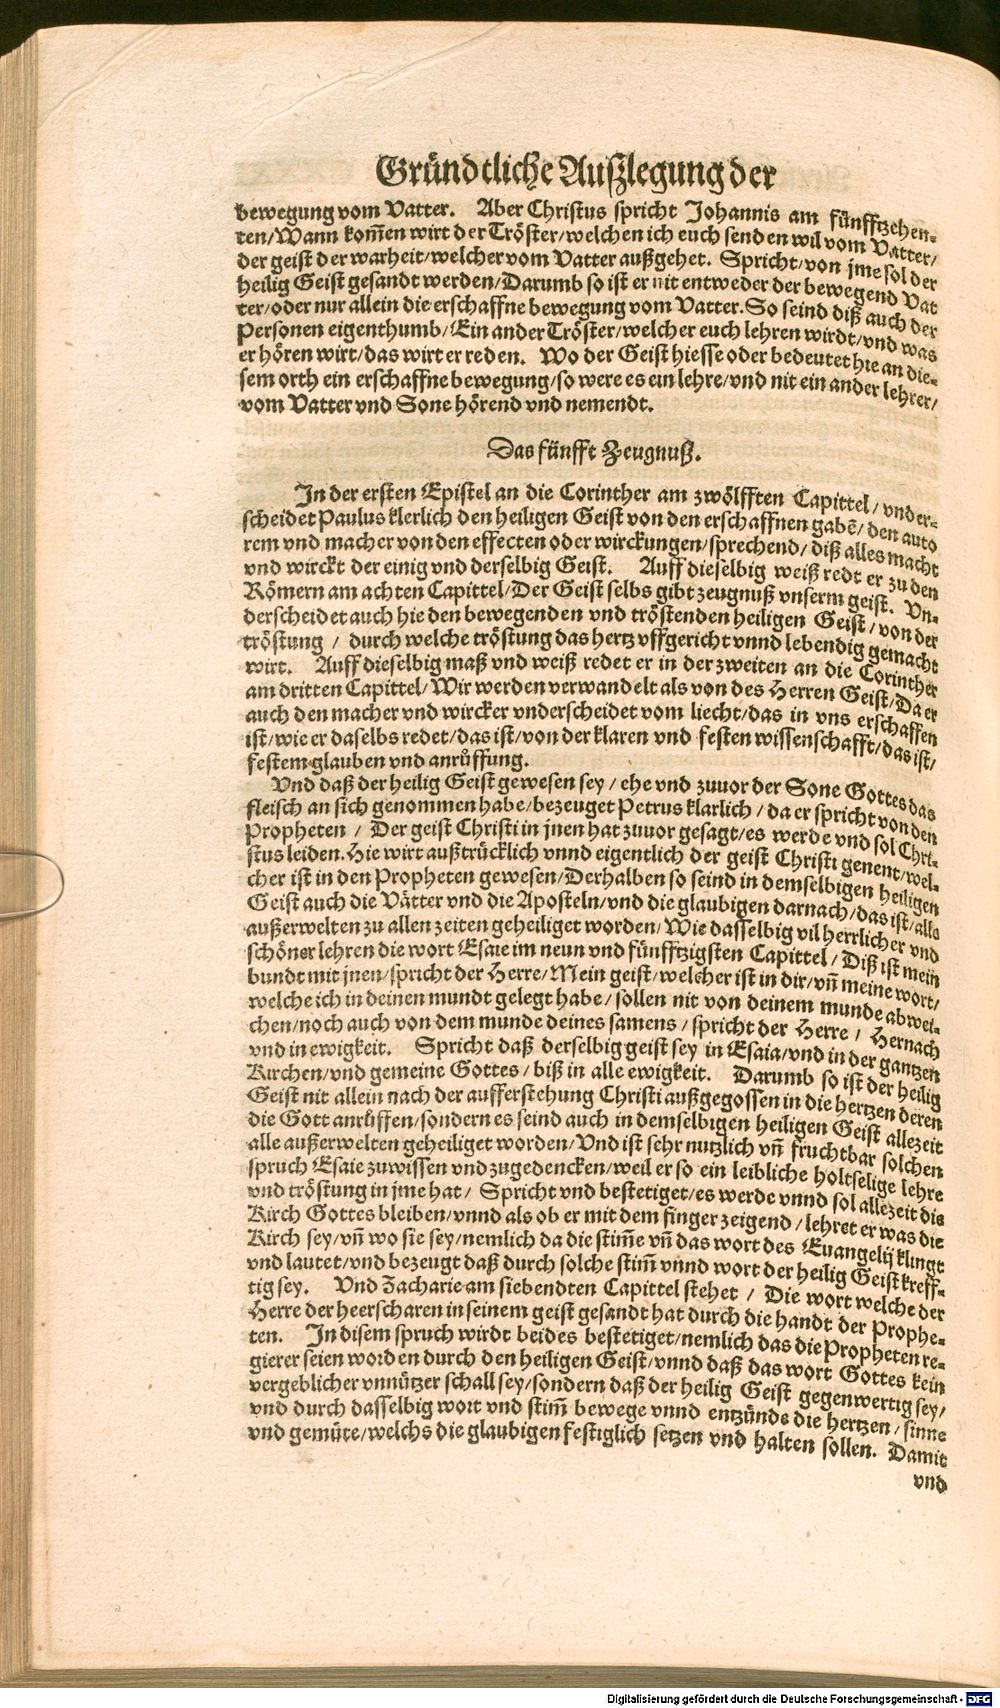 Gründtliche Außlegung der
bewegung vom Vatter. Aber Christus spricht Johannis am fünfftzehen-
ten/Wann kom̄en wirt der Tröster/welchen ich euch senden wil vom Vatter/
der geist der warheit/welcher vom Vatter außgehet. Spricht/von jme sol der
heilig Geist gesandt werden/Darumb so ist er nit entweder der bewegend Vat
ter/oder nur allein die erschaffne bewegung vom Vatter. So seind diß auch der
Personen eigenthumb/Ein ander Tröster/welcher euch lehren wirdt/vnd was
er hören wirt/das wirt er reden. Wo der Geist hiesse oder bedeutet hie an die-
sem orth ein erschaffne bewegung/so were es ein lehre/vnd nit ein ander lehrer/
vom Vatter vnd Sone hörend vnd nemendt.
Das fünfft Zeugnuß.
In der ersten Epistel an die Corinther am zwölfften Capittel/vnder-
scheidet Paulus klerlich den heiligen Geist von den erschaffnen gabē/den auto
rem vnd macher von den effecten oder wirckungen/sprechend/diß alles macht
vnd wirckt der einig vnd derselbig Geist. Auff dieselbig weiß redt er zu den
Römern am achten Capittel/Der Geist selbs gibt zeugnuß vnserm geist. Vn-
derscheidet auch hie den bewegenden vnd tröstenden heiligen Geist/von der
tröstung/durch welche tröstung das hertz vffgericht vnnd lebendig gemacht
wirt. Auff dieselbig maß vnd weiß redet er in der zweiten an die Corinther
am dritten Capittel/Wir werden verwandelt als von des Herren Geist/Da er
auch den macher vnd wircker vnderscheidet vom liecht/das in vns erschaffen
ist/wie er daselbs redet/das ist/von der klaren vnd festen wissenschafft/das ist/
festem glauben vnd anrůffung.
Vnd daß der heilig Geist gewesen sey/ehe vnd zuuor der Sone Gottes das
fleisch an sich genommen habe/bezeuget Petrus klarlich/da er spricht von den
Propheten/Der geist Christi in jnen hat zuuor gesagt/es werde vnd sol Chri-
stus leiden. Hie wirt außtrücklich vnnd eigentlich der geist Christi genent/wel-
cher ist in den Propheten gewesen/Derhalben so seind in demselbigen heiligen
Geist auch die Vätter vnd die Aposteln/vnd die glaubigen darnach/das ist/alle
außerwelten zu allen zeiten geheiliget worden/Wie dasselbig vil herrlicher vnd
schöner lehren die wort Esaie im neun vnd fünfftzigsten Capittel/Diß ist mein
bundt mit jnen/spricht der Herre/Mein geist/welcher ist in dir/vn̄ meine wort/
welche ich in deinen mundt gelegt habe/sollen nit von deinem munde abwei-
chen/noch auch von dem munde deines samens/spricht der Herre/Hernach
vnd in ewigkeit. Spricht daß derselbig geist sey in Esaia/vnd in der gantzen
Kirchen/vnd gemeine Gottes/biß in alle ewigkeit. Darumb so ist der heilig
Geist nit allein nach der aufferstehung Christi außgegossen in die hertzen deren
die Gott anrůffen/sondern es seind auch in demselbigen heiligen Geist allezeit
alle außerwelten geheiliget worden/Vnd ist sehr nutzlich vn̄ fruchtbar solchen
spruch Esaie zuwissen vnd zugedencken/weil er so ein leibliche holtselige lehre
vnd tröstung in jme hat/Spricht vnd bestetiget/es werde vnnd sol allezeit die
Kirch Gottes bleiben/vnnd als ob er mit dem finger zeigend/lehret er was die
Kirch sey/vn̄ wo sie sey/nemlich da die stim̄e vn̄ das wort des Euangelij klingt
vnd lautet/vnd bezeugt daß durch solche stim̄ vnnd wort der heilig Geist kreff-
tig sey. Vnd Zacharie am siebendten Capittel stehet/Die wort welche der
Herre der heerscharen in seinem geist gesandt hat durch die handt der Prophe-
ten. In disem spruch wirdt beides bestetiget/nemlich das die Propheten re-
gierer seien worden durch den heiligen Geist/vnnd daß das wort Gottes kein
vergeblicher vnnützer schall sey/sondern daß der heilig Geist gegenwertig sey/
vnd durch dasselbig wort vnd stim̄ bewege vnnd entzünde die hertzen/sinne
vnd gemüte/welchs die glaubigen festiglich setzen vnd halten sollen. Damit
vnd
Digitalisierung gefördert durch die Deutsche Forschungsgemeinschaft - DFG